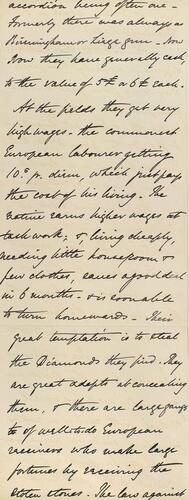 accordion being often one -
Formerly there was always a
Birmingham or Liege gun - Now
Now they have generally cash,
to the value of 5£ or 6£ each.
At the fields they get very
high wages - the commonest
European labourer getting
10s. pr. diem, which just pays
the cost of his living. The
native earns higher wages at
task work; & living cheaply,
needing little houseroom &
few clothes, saves a good deal
in 6 months - & is soon able
to turn homewards - Their
great temptation is to steal
the Diamonds they find. They
are great adepts at concealing
them, & there are large gangs
of well to do European
receivers who make large
fortunes by receiving the
stolen stones. The law against